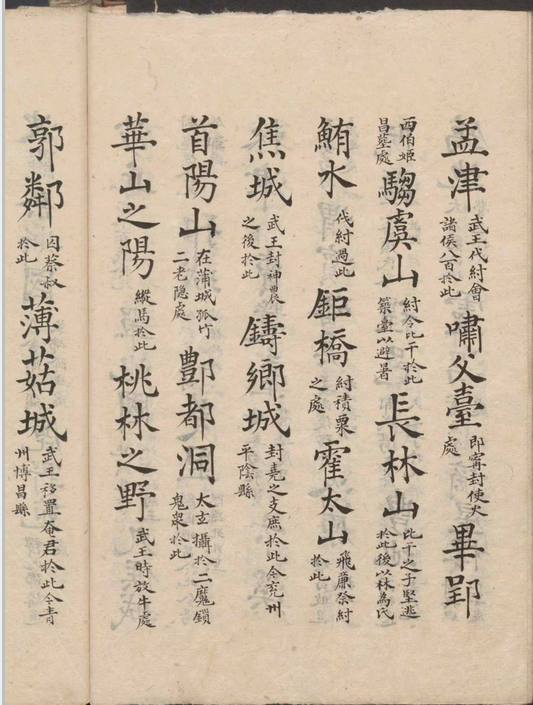 孟津武王伐紂會諸侯八百扵此嘯父臺即甯封使火處畢郢
西伯姬昌墓處騶虞山紂令比干扵此築臺以避暑長林山比干之子堅逃扵此後以林為氏
鮪水伐紂過此鉅橋紂積粟之處霍太山飛廉祭紂扵此
焦城武王封神農之後扵此鑄鄉城封堯之支庶扵此今兖州平陰縣
首陽山在蒲城孤竹二老隐處酆都洞太玄攝扵二魔鎖鬼衆扵此
華山之陽縱馬扵此桃林之野武王時放牛處
郭鄰囚蔡叔扵此薄菇城武王移置奄君扵此今青州博昌縣